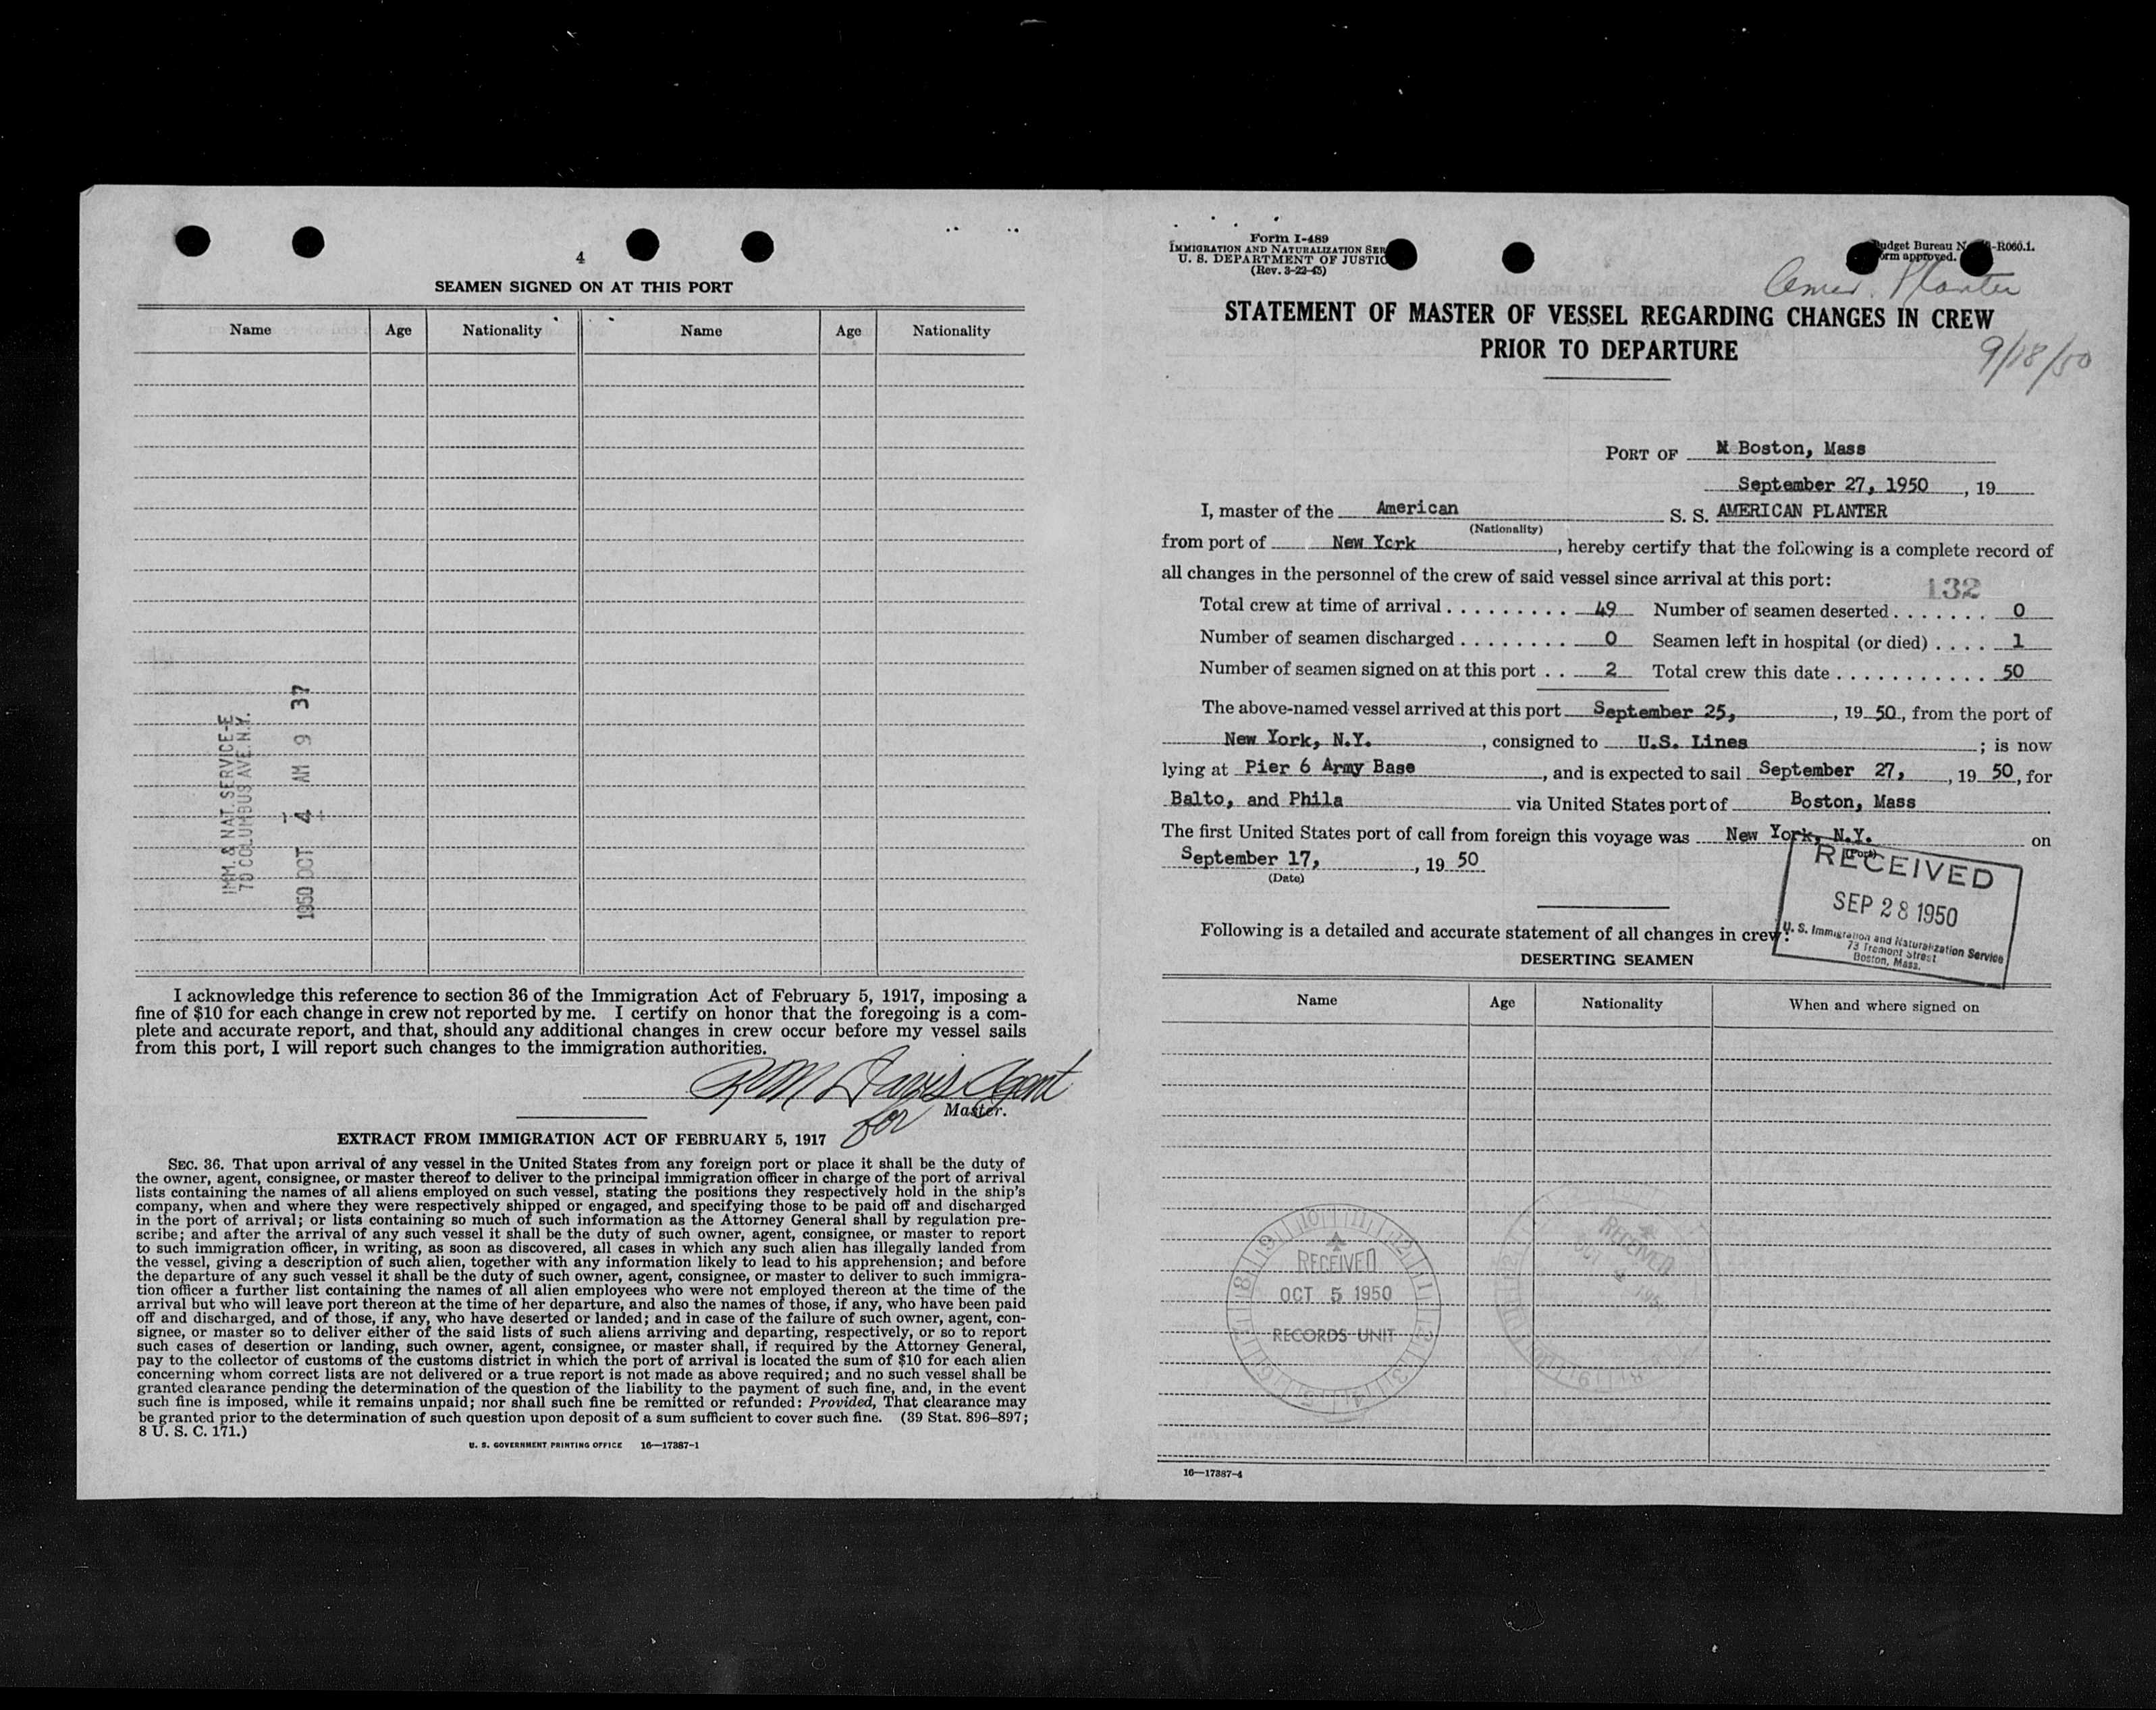 4
SEAMEN SIGNED ON AT THIS PORT
Name Age Nationality Name Age Nationality
IMM. & NAT. SERVICE-E
70 COLUMBUS AVE. N.Y.
1950 OCT 4 AM 9 37
I acknowledge this reference to section 36 of the Immigration Act of February 5, 1917, imposing a
fine of $10 for each change in crew not reported by me. I certify on honor that the foregoing is a com-
plete and accurate report, and that, should any additional changes in crew occur before my vessel sails
from this port, I will report such changes to the immigration authorities.
RM Davis Agent
for Master.
EXTRACT FROM IMMIGRATION ACT OF FEBRUARY 5, 1917
SEC. 36. That upon arrival of any vessel in the United States from any foreign port or place it shall be the duty of
the owner, agent, consignee, or master thereof to deliver to the principal immigration officer in charge of the port of arrival
lists containing the names of all aliens employed on such vessel, stating the positions they respectively hold in the ship's
company, when and where they were respectively shipped or engaged, and specifying those to be paid off and discharged
in the port of arrival; or lists containing so much of such information as the Attorney General shall by regulation pre-
scribe; and after the arrival of any such vessel it shall be the duty of such owner, agent, consignee, or master to report
to such immigration officer, in writing, as soon as discovered, all cases in which any such alien has illegally landed from
the vessel, giving a description of such alien, together with any information likely to lead to his apprehension; and before
the departure of any such vessel it shall be the duty of such owner, agent, consignee, or master to deliver to such immigra-
tion officer a further list containing the names of all alien employees who were not employed thereon at the time of the
arrival but who will leave port thereon at the time of her departure, and also the names of those, if any, who have been paid
off and discharged, and of those, if any, who have deserted or landed; and in case of the failure of such owner, agent, con-
signee, or master so to deliver either of the said lists of such aliens arriving and departing, respectively, or so to report
such cases of desertion or landing, such owner, agent, consignee, or master shall, if required by the Attorney General,
pay to the collector of customs of the customs district in which the port of arrival is located the sum of $10 for each alien
concerning whom correct lists are not delivered or a true report is not made as above required; and no such vessel shall be
granted clearance pending the determination of the question of the liability to the payment of such fine, and, in the event
such fine is imposed, while it remains unpaid; nor shall such fine be remitted or refunded: Provided, That clearance may
be granted prior to the determination of such question upon deposit of a sum sufficient to cover such fine. (39 Stat. 896–897;
8 U. S. C. 171.)
U. S. GOVERNMENT PRINTING OFFICE 16—17387-1
Form I-489
IMMIGRATION AND NATURALIZATION SER
U. S. DEPARTMENT OF JUSTIC
(Rev. 3-22-45)
udget Bureau N -R060.1.
orm approved.
Amer. Planter
STATEMENT OF MASTER OF VESSEL REGARDING CHANGES IN CREW
PRIOR TO DEPARTURE
9/18/50
PORT OF Boston, Mass
September 27, 1950, 19
I, master of the American S. S. AMERICAN PLANTER
(Nationality)
from port of New York, hereby certify that the following is a complete record of
all changes in the personnel of the crew of said vessel since arrival at this port:
132
Total crew at time of arrival . . . . . . . . . 49 Number of seamen deserted . . . . . . . 0
Number of seamen discharged . . . . . . . . 0 Seamen left in hospital (or died) . . . . 1
Number of seamen signed on at this port . . 2 Total crew this date . . . . . . . . . . . 50
The above-named vessel arrived at this port September 25, , 19 50, from the port of
New York, N.Y. , consigned to U.S. Lines ; is now
lying at Pier 6 Army Base , and is expected to sail September 27, , 19 50, for
Balto, and Phila via United States port of Boston, Mass
The first United States port of call from foreign this voyage was New York, N.Y. on
(Port)
September 17, , 19 50
(Date)
RECEIVED
SEP 28 1950
U. S. Immigration and Naturalization Service
73 Tremont Street
Boston, Mass.
Following is a detailed and accurate statement of all changes in crew:
DESERTING SEAMEN
Name Age Nationality When and where signed on
RECEIVED
OCT 5 1950
RECORDS UNIT
RECEIVED
OCT 4 1950
16—17387-4